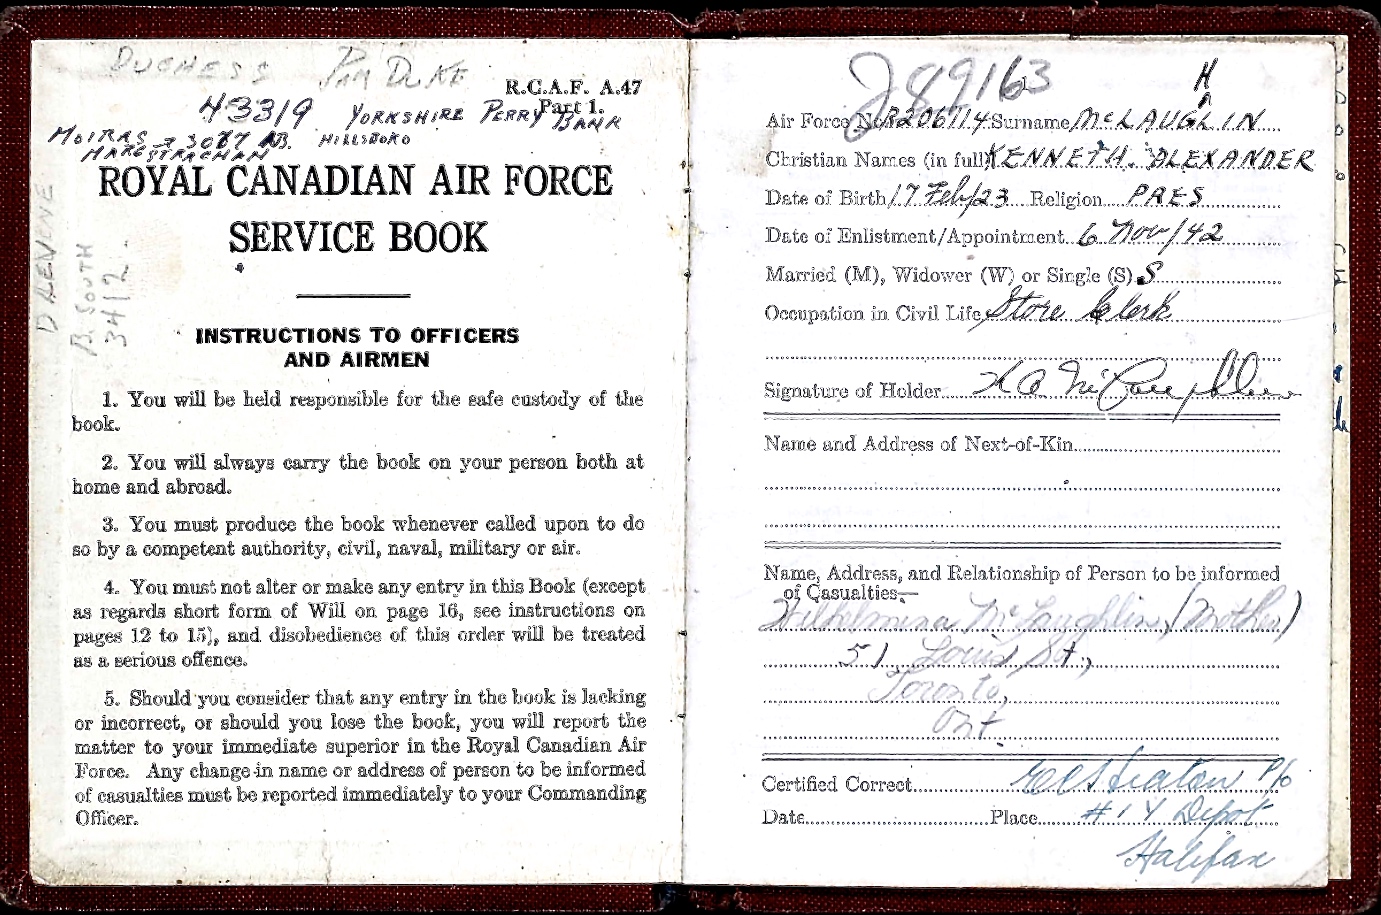 DUCHESS PIM DUKE
R.C.A.F. A.47
Part 1.
43319 YORKSHIRE PERRY BANK
MOIRAS 3087 NB. HILLSBORO
MARG STRACHAN
ROYAL CANADIAN AIR FORCE
SERVICE BOOK
B. SOUTH
3412.
INSTRUCTIONS TO OFFICERS
AND AIRMEN
1. You will be held responsible for the safe custody of the
book.
2. You will always carry the book on your person both at
home and abroad.
3. You must produce the book whenever called upon to do
so by a competent authority, civil, naval, military or air.
4. You must not alter or make any entry in this Book (except
as regards short form of Will on page 16, see instructions on
pages 12 to 15), and disobedience of this order will be treated
as a serious offence.
5. Should you consider that any entry in the book is lacking
or incorrect, or should you lose the book, you will report the
matter to your immediate superior in the Royal Canadian Air
Force. Any change in name or address of person to be informed
of casualties must be reported immediately to your Commanding
Officer.
289163
H
Air Force No. R206114 Surname McLAUGLIN
Christian Names (in full) KENNETH. ALEXANDER
Date of Birth 17 Feb/23 Religion PRES
Date of Enlistment/Appointment 6 Nov/42
Married (M), Widower (W) or Single (S) S
Occupation in Civil Life Store Clerk
Signature of Holder K A McLaughlin
Name and Address of Next-of-Kin
Name, Address, and Relationship of Person to be informed
of Casualties—
Wilhelmina McLaughlin, (Mother)
51 Louis St.,
Toronto,
Ont
Certified Correct P/O
Date Place #1 Y Depot
Halifax